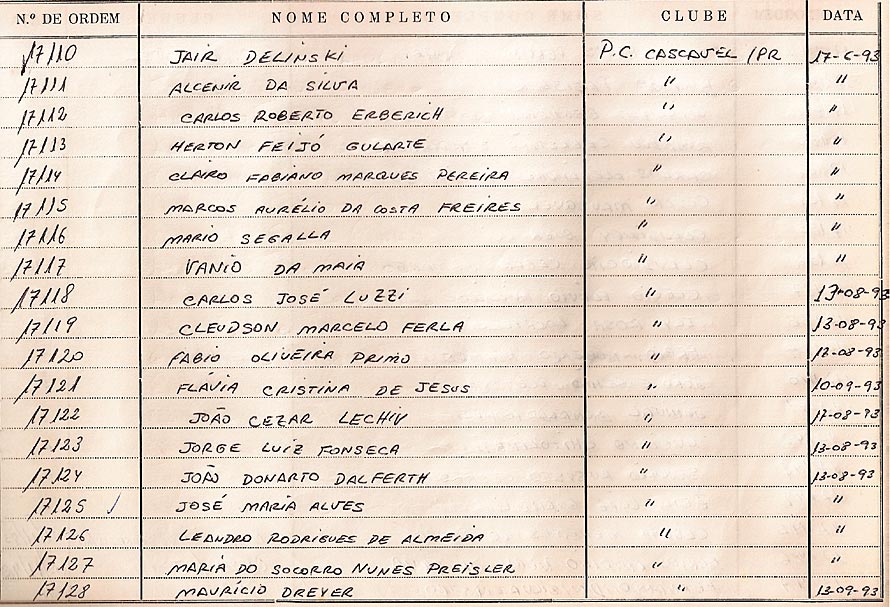 N.º DE ORDEM NOME COMPLETO CLUBE DATA
17110 JAIR DELINSKI P.C. CASCAVEL /PR 17-6-93
17111 ALCENIR DA SILVA " "
17112 CARLOS ROBERTO ERBERICH " "
17113 HERTON FEIJÓ GULARTE " "
17114 CLAIRO FABIANO MARQUES PEREIRA " "
17115 MARCOS AURÉLIO DA COSTA FREIRES " "
17116 MARIO SEGALLA " "
17117 VANIO DA MAIA " "
17118 CARLOS JOSÉ LUZZI " 13-08-93
17119 CLEUDSON MARCELO FERLA " 13-08-93
17120 FABIO OLIVEIRA PRIMO " 12-08-93
17121 FLÁVIA CRISTINA DE JESUS " 10-09-93
17122 JOÃO CEZAR LECHIV " 17-08-93
17123 JORGE LUIZ FONSECA " 13-08-93
17124 JOÃO DONARTO DALFERTH " 13-08-93
17125 JOSÉ MARIA ALVES " "
17126 LEANDRO RODRIGUES DE ALMEIDA " "
17127 MARIA DO SOCORRO NUNES PREISLER " "
17128 MAURÍCIO DREYER " 13-09-93